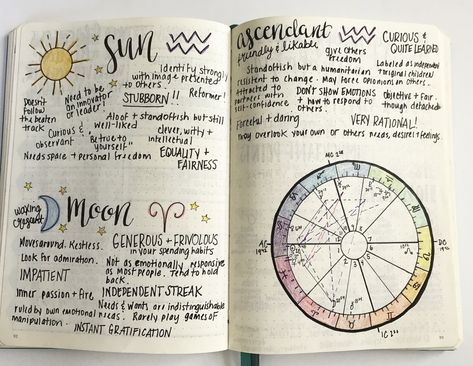 sun
Identify strongly
with image presented
to others.
Need to be
an innovator
or leader!
STUBBORN!!
Reformer!
Doesn't
follow
the beaten
track
Aloof + standoffish but still
well-liked
Curious &
observant
"Be true to
yourself"
clever, witty +
intellectual
Needs space + personal freedom
EQUALITY +
FAIRNESS
waxing
crescent
Moon
Moves around. Restless.
GENEROUS + FRIVOLOUS
in your spending habits
Look for admiration.
Not as emotionally responsive
as most people. Tend to hold
back.
IMPATIENT
Inner passion + fire
INDEPENDENT STREAK
Needs & wants are indistinguishable
ruled by own emotional needs. Rarely play games of
manipulation.
INSTANT GRATIFICATION
ascendant
friendly & likable
give others
freedom
CURIOUS &
QUITE LEARNED
Standoffish but a humanitarian
Labeled as independent
+ original children!
resistent to change. May force opinions on others.
Attracted to
partners with
self-confidence
DON'T SHOW EMOTIONS
+ how to respond to
others.
Objective + fair
though detached
Forceful + daring
VERY RATIONAL!
May overlook your own or others needs, desires + feelings.
MC
AC
DC
IC